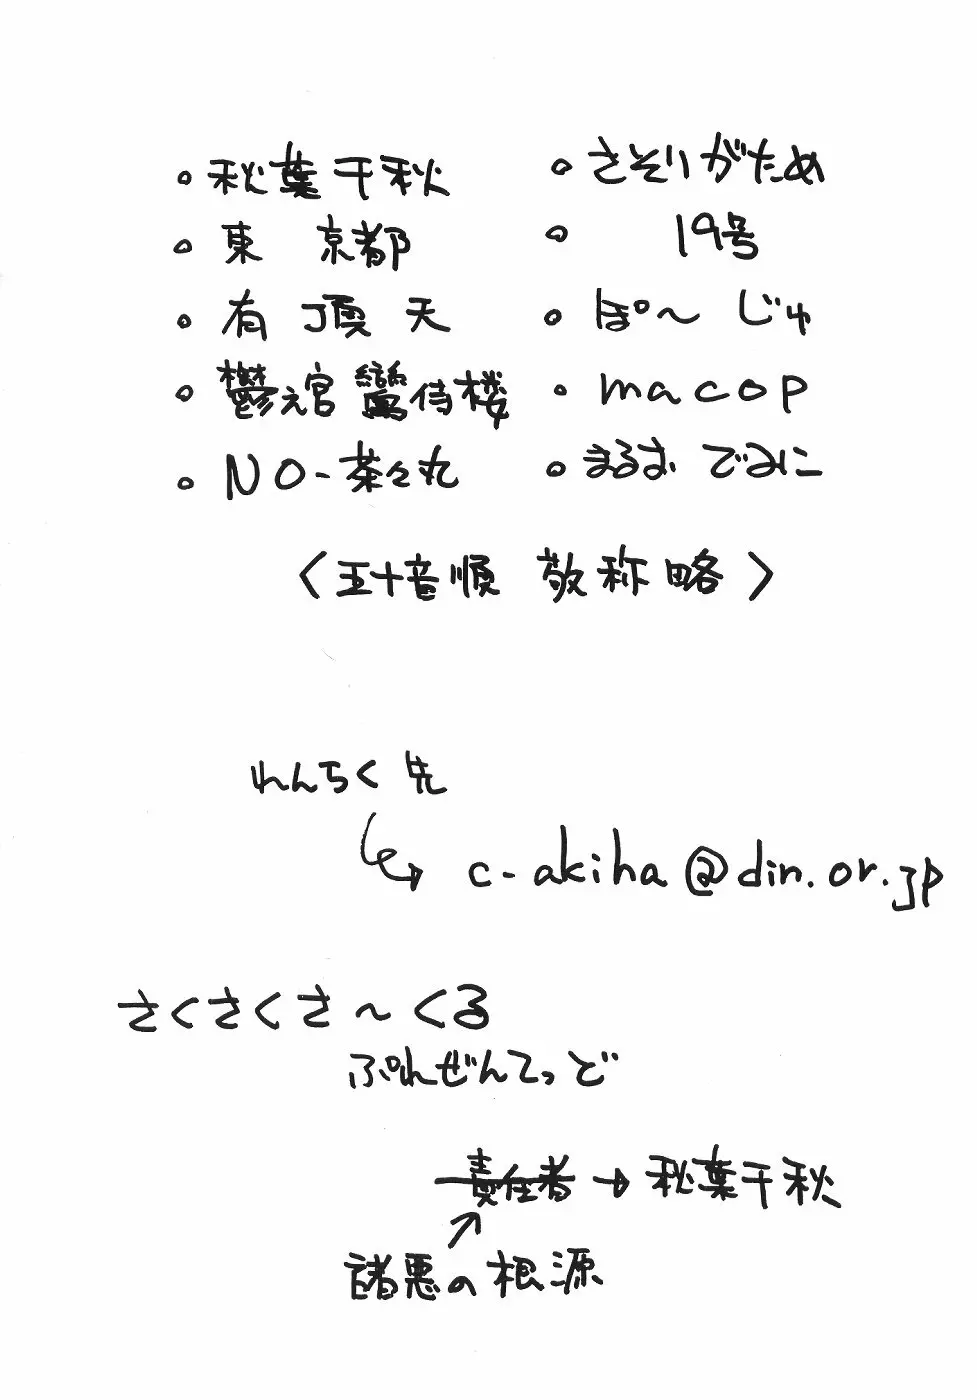 ・秋葉千秋
・東 京都
・有頂天
・鬱え宮 鸞侍楼
・NO-茶々丸
・さそりがため
・19号
・ぽ～じゅ
・macop
・まるお でみに
〈五十音順 敬称略〉
れんらく先
c-akiha@din.or.jp
さくさくさ～くる
ぷれぜんてっど
責任者→秋葉千秋
諸悪の根源